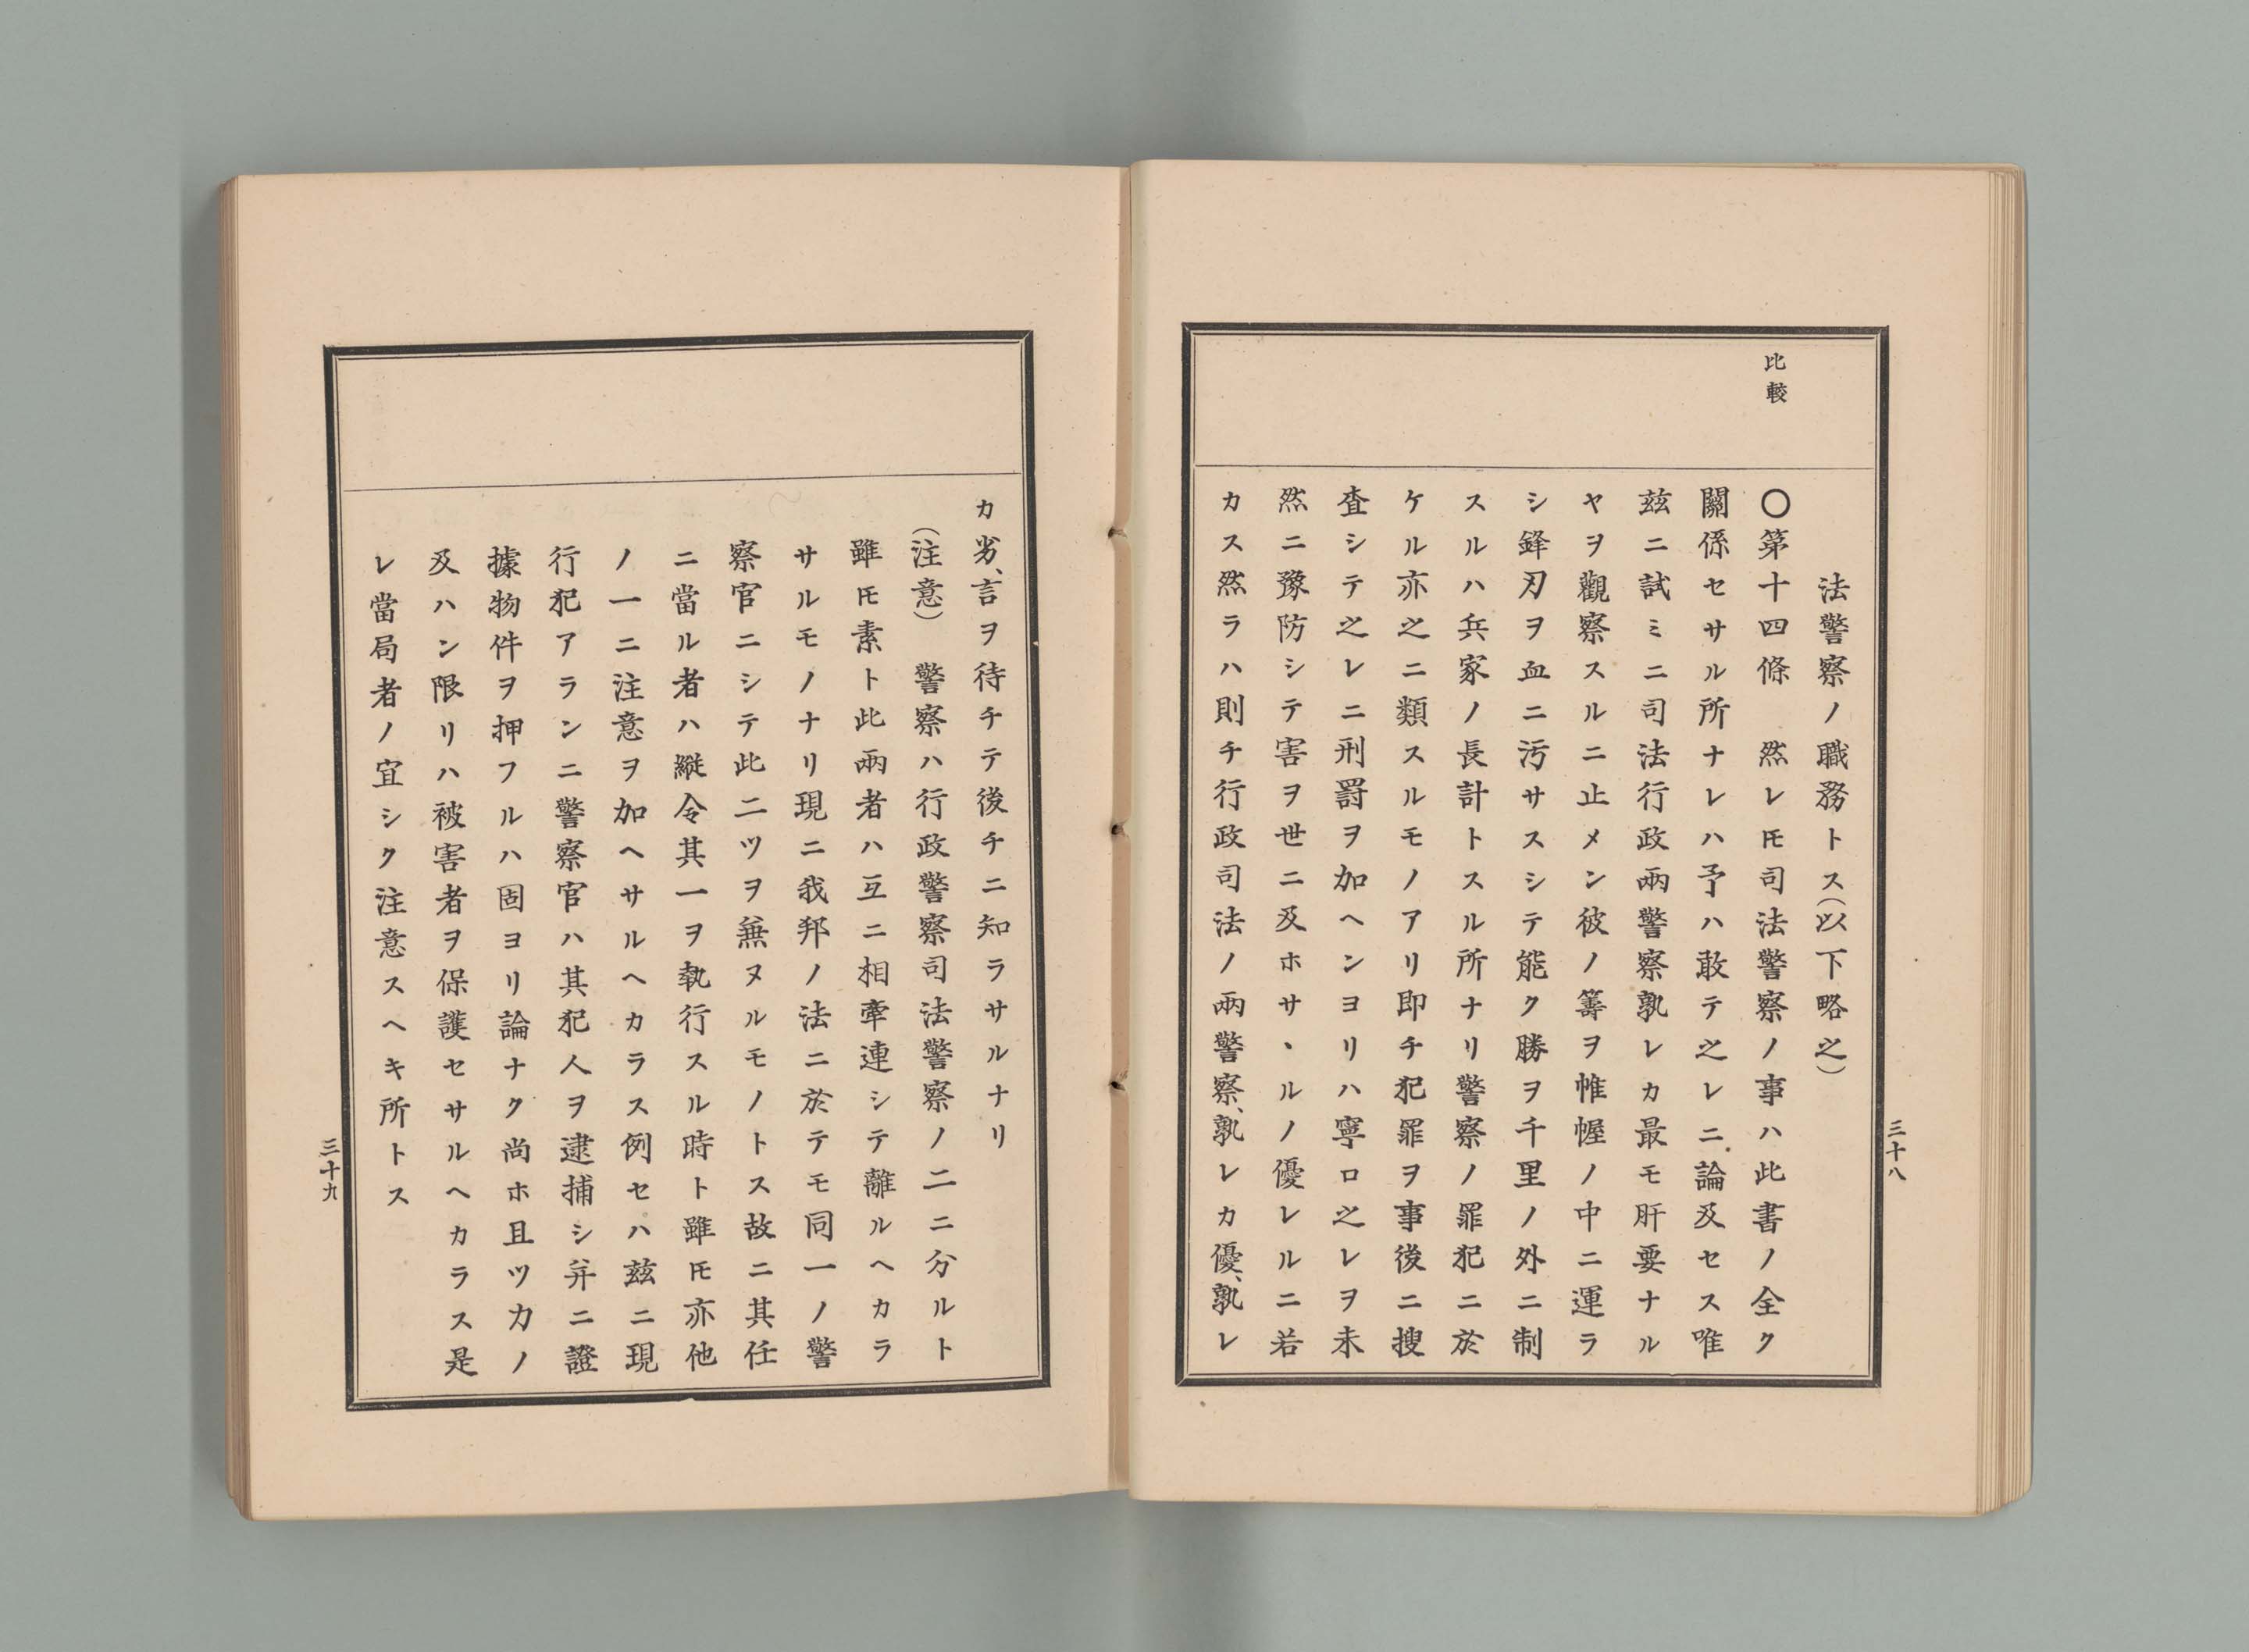 比較
法警察ノ職務トス(以下略之)
〇第十四條　然レ𪜈司法警察ノ事ハ此書ノ全ク
關係セサル所ナレハ予ハ敢テ之レニ論及セス唯
玆ニ試ミニ司法行政兩警察孰レカ最モ肝要ナル
ヤヲ觀察スルニ止メン彼ノ籌ヲ帷幄ノ中ニ運ラ
シ鋒刃ヲ血ニ汚サスシテ能ク勝ヲ千里ノ外ニ制
スルハ兵家ノ長計トスル所ナリ警察ノ罪犯ニ於
ケル亦之ニ類スルモノアリ即チ犯罪ヲ事後ニ搜
査シテ之レニ刑罸ヲ加ヘンヨリハ寧ロ之レヲ未
然ニ豫防シテ害ヲ世ニ及ホサヽルノ優レルニ若
カス然ラハ則チ行政司法ノ兩警察、孰レカ優、孰レ
三十八
カ劣、言ヲ待チテ後チニ知ラサルナリ
(注意)　警察ハ行政警察司法警察ノ二ニ分ルト
雖𪜈素ト此兩者ハ互ニ相牽連シテ離ルヘカラ
サルモノナリ現ニ我邦ノ法ニ於テモ同一ノ警
察官ニシテ此二ツヲ兼ヌルモノトス故ニ其任
ニ當ル者ハ縱令其一ヲ執行スル時ト雖𪜈亦他
ノ一ニ注意ヲ加ヘサルヘカラス例セハ玆ニ現
行犯アランニ警察官ハ其犯人ヲ逮捕シ幷ニ證
據物件ヲ押フルハ固ヨリ論ナク尚ホ且ツ力ノ
及ハン限リハ被害者ヲ保護セサルヘカラス是
レ當局者ノ宜シク注意スヘキ所トス
三十九